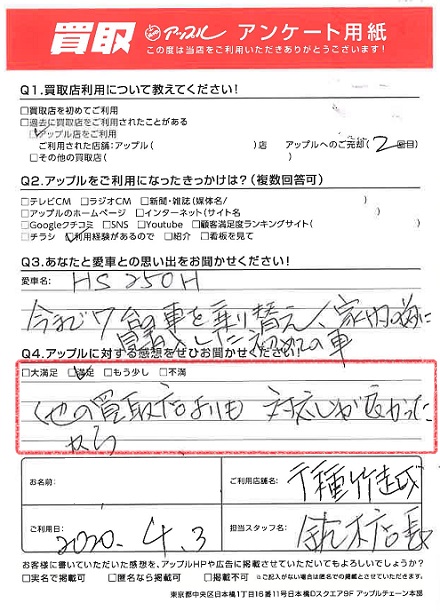 買取 アップル アンケート用紙
この度は当店をご利用いただきありがとうございます!
Q1.買取店利用について教えてください!
□買取を初めてご利用
□過去に買取店をご利用されたことがある
□アップル店をご利用
ご利用された店舗:アップル( )店 アップルへのご売却(2回目)
□その他の買取店( )
Q2.アップルをご利用になったきっかけは?(複数回答可)
□テレビCM □ラジオCM □新聞・雑誌(媒体名/ )
□アップルのホームページ □インターネット(サイト名 )
□Googleクチコミ □SNS □Youtube □顧客満足度ランキングサイト( )
□チラシ ☑利用経験があるので □紹介 □看板を見て
Q3.あなたと愛車との思い出をお聞かせください!
愛車名: HS 250H
今まで7台の車を乗り替え、家内の為に
買替えした初めての車
Q4.アップルに対する感想をぜひお聞かせください!
□大満足 ☑満足 □もう少し □不満
他の買取店よりも 対応しが良かった
から
お名前:
ご利用店舗名: 千種竹越店
ご利用日: 2020. 4. 3
担当スタッフ名: 鈴木店長
お客様に書いていただいた感想を、アップルHPや広告に掲載させていただいてもよろしいでしょうか?
□実名で掲載可 □匿名なら掲載可 □掲載不可 ※ご記入がない場合は匿名での掲載とさせていただきます。
東京都中央区日本橋1丁目16番11号日本橋Dスクエア9F アップルチェーン本部